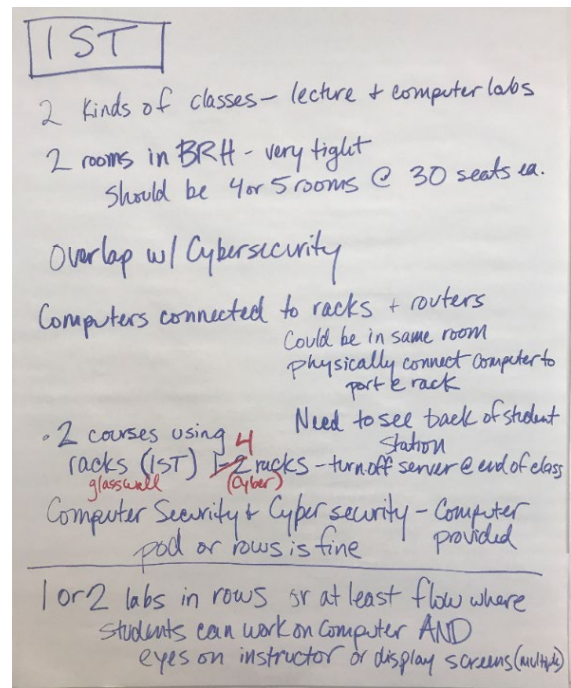 IST
2 Kinds of classes - lecture + computer labs
2 rooms in BRH - very tight
Should be 4 or 5 rooms @ 30 seats ea.
Overlap w/ Cybersecurity
Computers connected to racks + routers
Could be in same room
physically connect computer to
port @ rack
Need to see back of student
station
• 2 courses using 4
racks (IST) 2 racks - turn off server @ end of class
glass wall (Cyber)
Computer Security + Cyber security - Computer
provided
pod or rows is fine
1 or 2 labs in rows or at least flow where
students can work on computer AND
eyes on instructor or display screens (multiple)